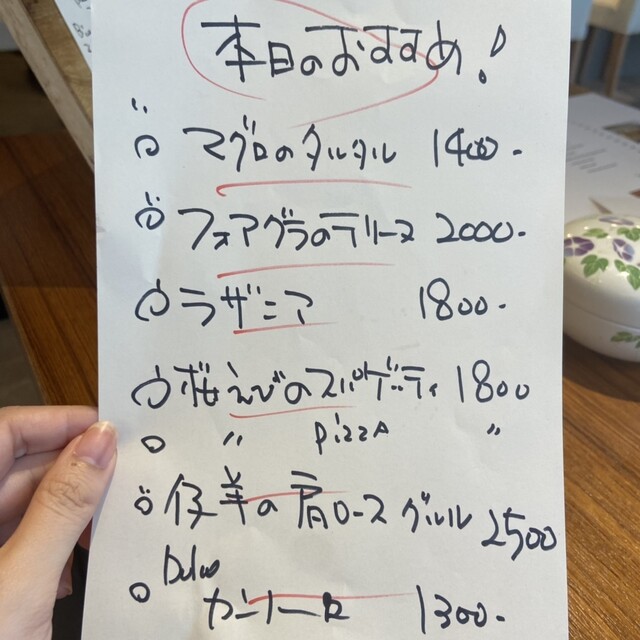 本日のおすすめ!
マグロのタルタル 1400-
フォアグラのテリーヌ 2000-
ラザニア 1800-
桜えびのスパゲッティ 1800
〃 pizza 〃
仔羊の肩ロースグリル 2500
1300-